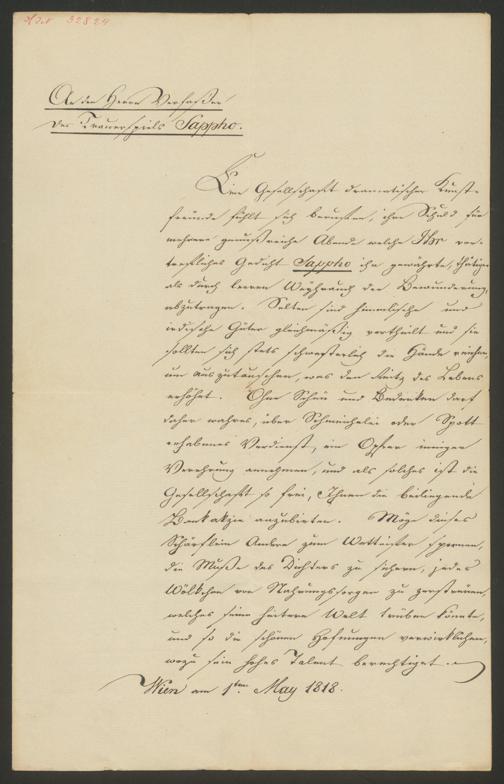 32824
An den Herrn Verfasser
des Trauerspiels Sappho.
Eine Gesellschaft dramatischer Kunst-
freunde fühlt sich berufen, ihre Schuld für
mehrere genußreiche Abende welche Ihr vor-
treffliches Gedicht Sappho ihr gewährte, thätiger
als durch leeren Weyhrauch der Bewunderung,
abzutragen. Selten sind himmlische und
irdische Güter gleichmäßig vertheilt und sie
sollten sich stets schwesterlich die Hände reichen,
um auszutauschen, was den Reitz des Lebens
erhöhet. Ohne Scheu und Bedenken darf
daher wahres, über Schmeichelei oder Spott
erhabenes Verdienst, ein Opfer inniger
Verehrung annehmen, und als solches ist die
Gesellschaft so frei, Ihnen die beiliegende
Bankakzie anzubiethen. Möge dieses
Schärflein Andre zum Wetteifer spornen,
die Muße des Dichters zu sichern, jedes
Wölkchen von Nahrungssorgen zu zerstreuen,
welches seine heitere Welt trüben könnte,
und so die schönen Hofnungen verwirklichen,
wozu sein hohes Talent berechtiget.
Wien am 1ten May 1818.